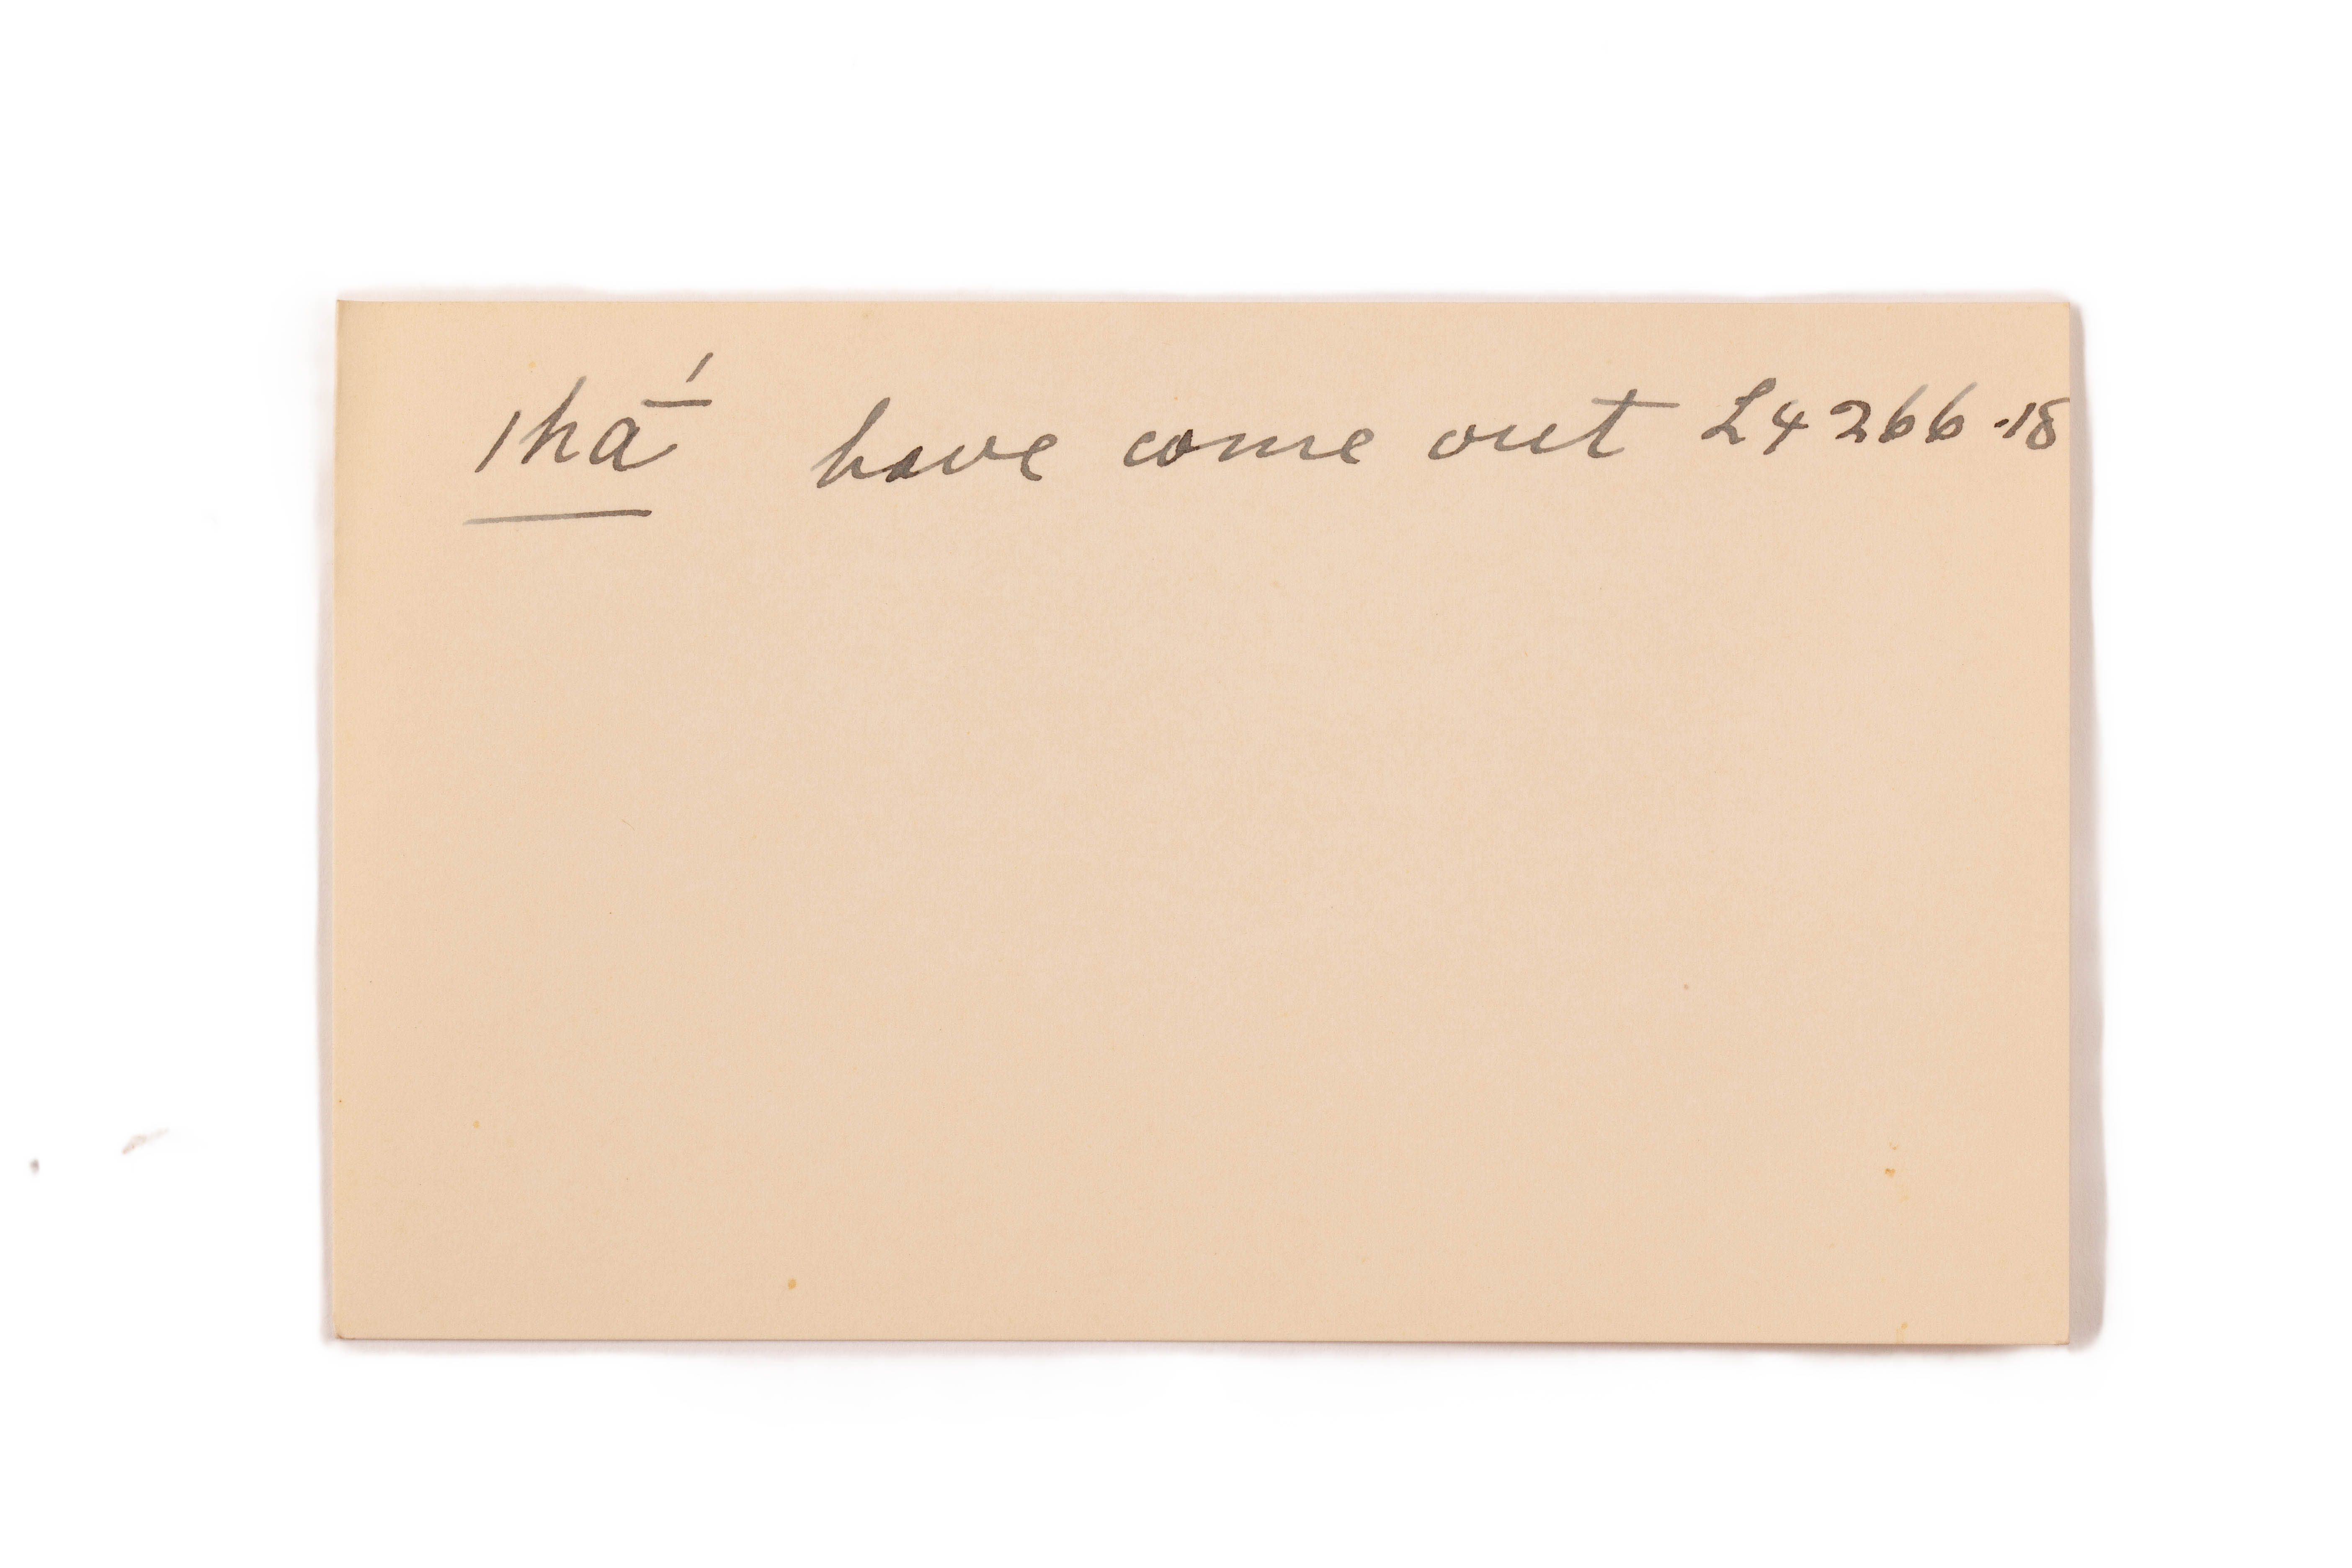 ıhā́ have come out L4 266.18